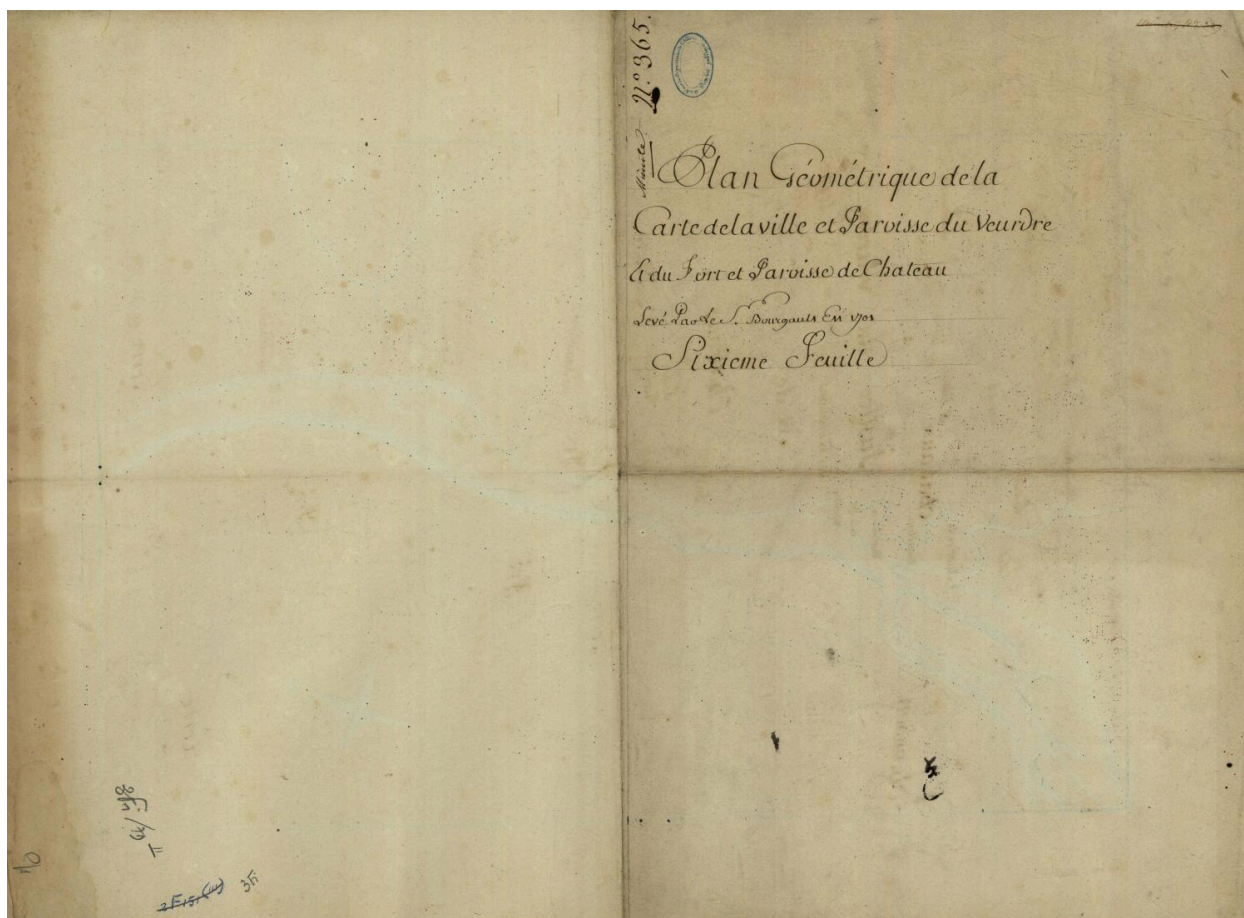 N.º 365.
Minute
Plan Géométrique de la
Carte de la ville et Paroisse du Veurdre
Et du Fort et Paroisse de Chateau
Levé Par Le S. Bourgault En 1701
Sixieme Feuille
3Fi